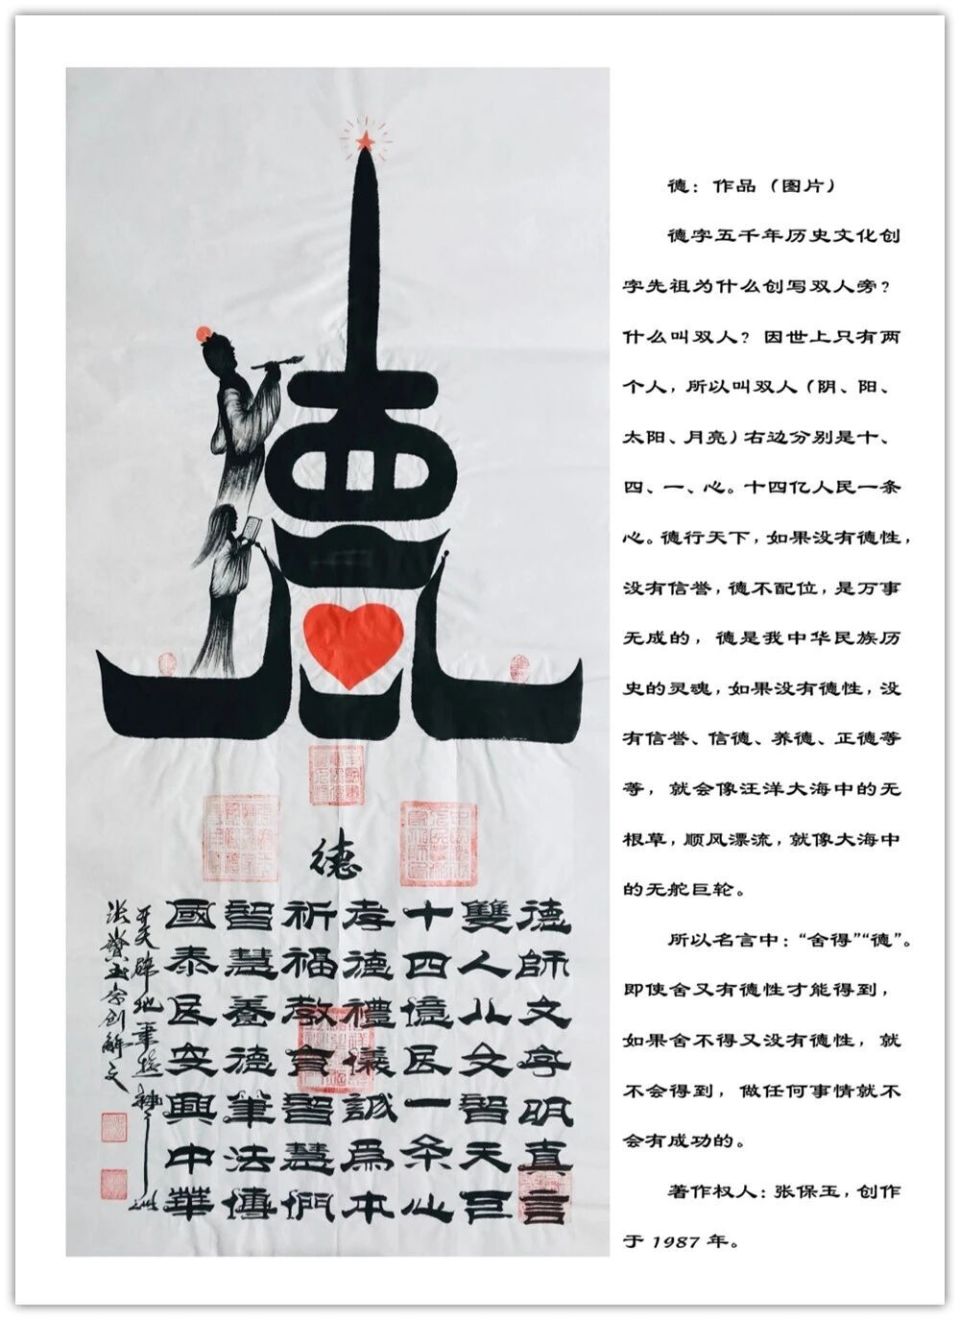 德
德師文字明真言
雙人八文智天巨
十四億民一条心
孝德禮儀誠為本
祈福教育智慧們
智慧養德筆法傳
國泰民安興中華
开天辟地筆
字创解文
德：作品（图片）
德字五千年历史文化创
字先祖为什么创写双人旁？
什么叫双人？因世上只有两
个人，所以叫双人（阴、阳、
太阳、月亮）右边分别是十、
四、一、心。十四亿人民一条
心。德行天下，如果没有德性，
没有信誉，德不配位，是万事
无成的，德是我中华民族历
史的灵魂，如果没有德性，没
有信誉、信德、养德、正德等
等，就会像汪洋大海中的无
根草，顺风漂流，就像大海中
的无舵巨轮。
所以名言中：“舍得”“德”。
即使舍又有德性才能得到，
如果舍不得又没有德性，就
不会得到，做任何事情就不
会有成功的。
著作权人：张保玉，创作
于 1987 年。